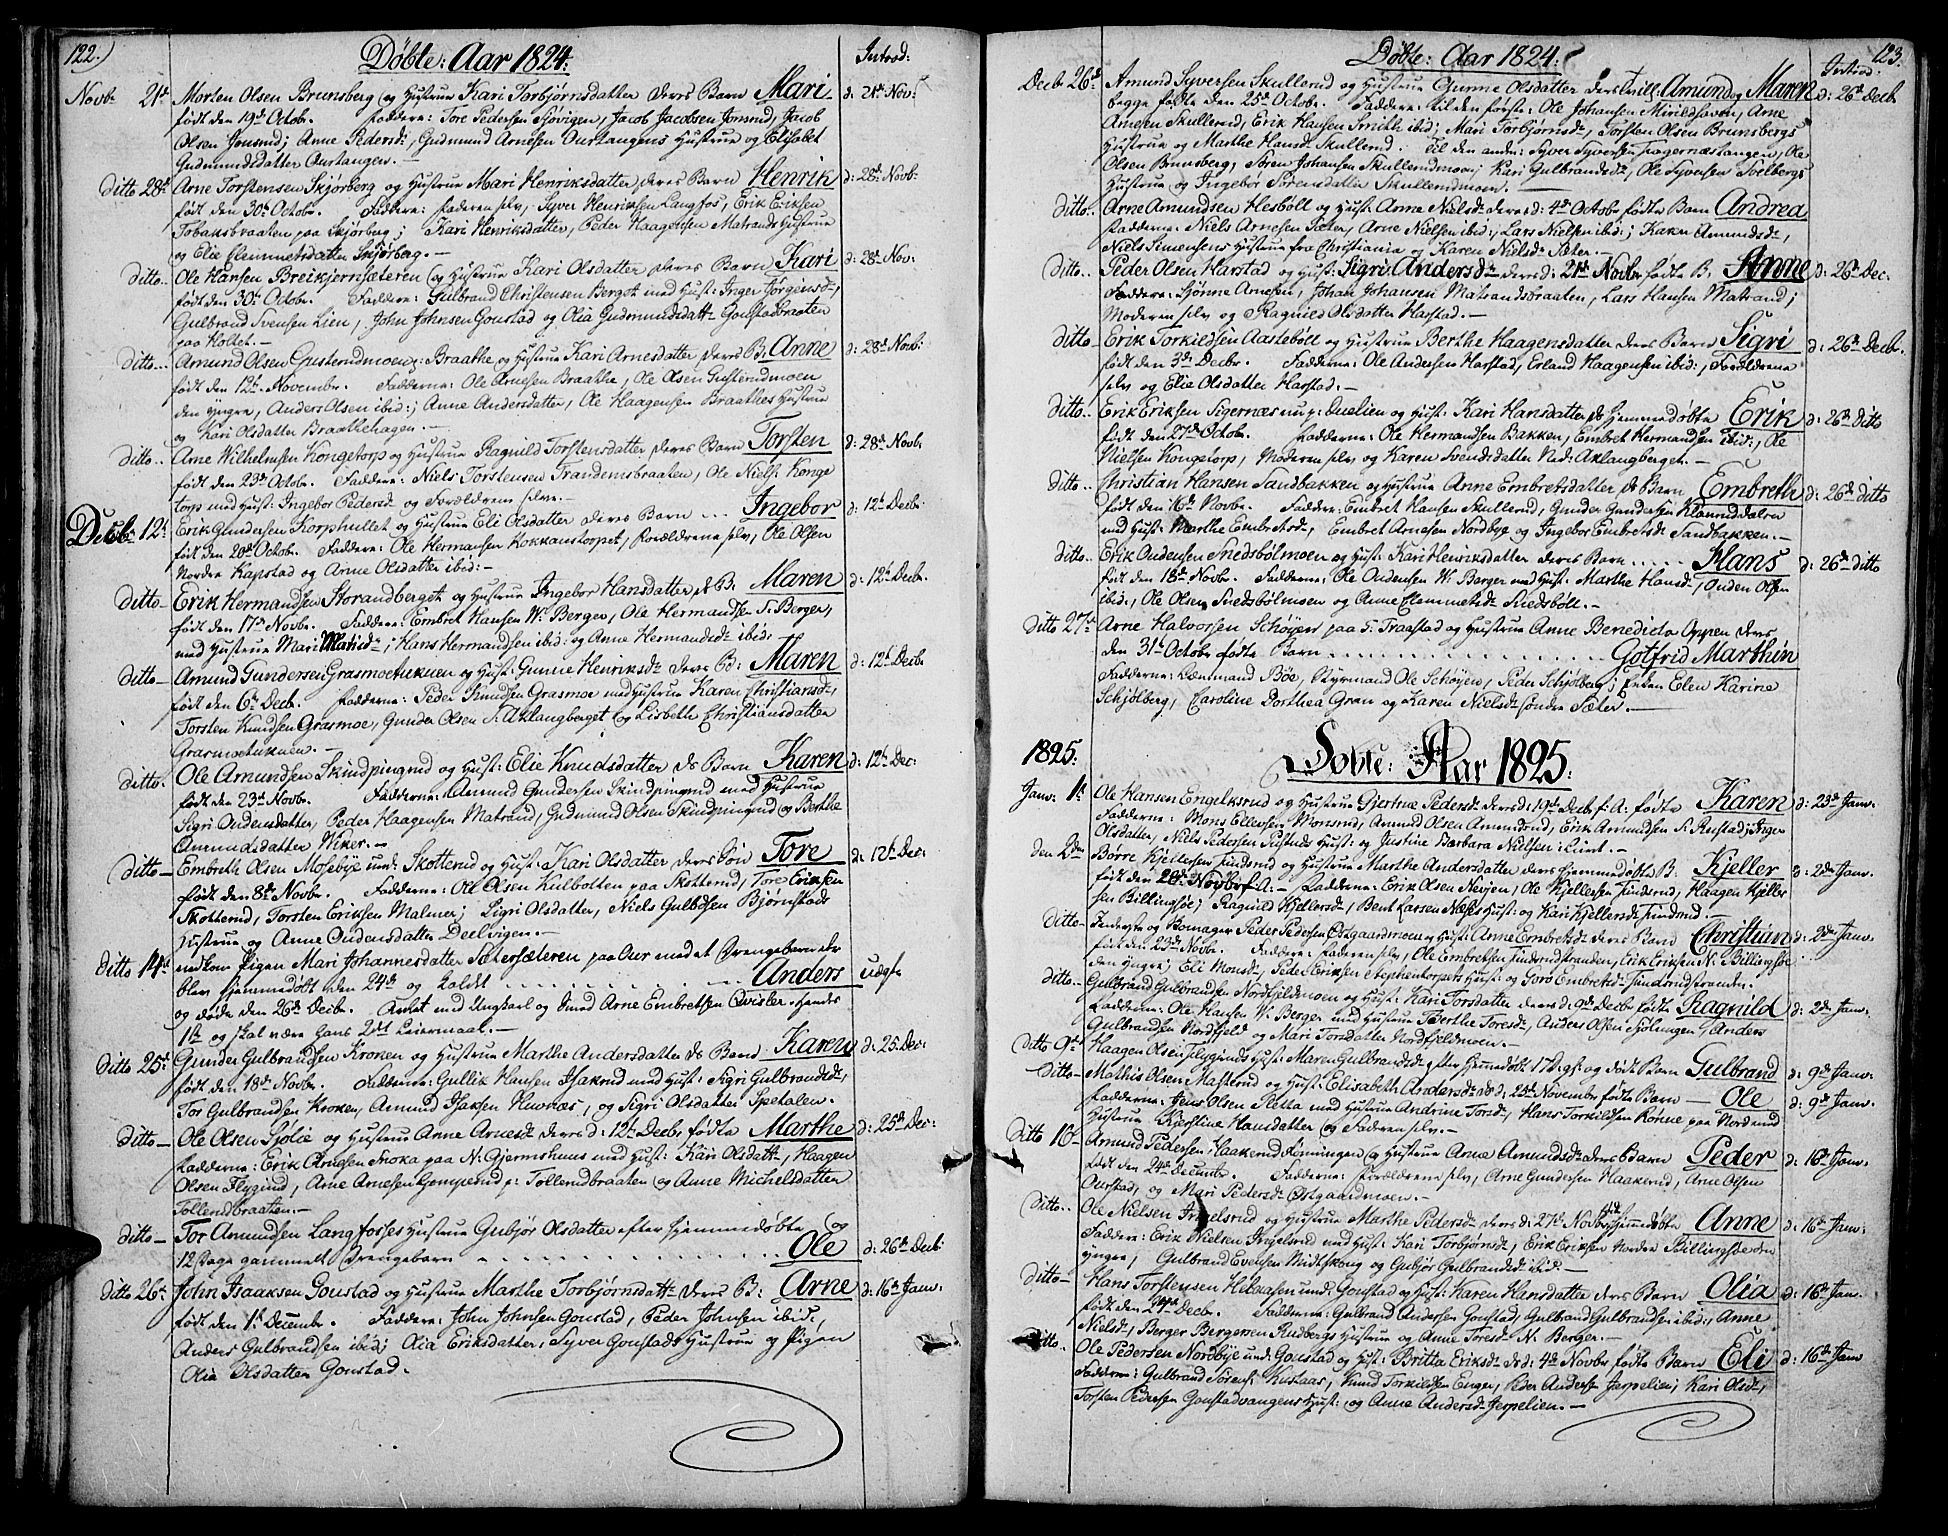 122.)
Døbte: Aar 1824.
Introd:
Novbr 21de Morten Olsen Brunsberg og Hustrue Kari Torbjørnsdatter deres Barn Mari d: 21de Nov:
født den 19de Octobr. Faddere: Tore Pedersen Sjøvigen, Jacob Jacobsen Jonsrud, Jacob
Olsen Jonsrud; Anne Pedersd:, Gudmund Arnesen Ourtangens Hustrue og Elisabet
Gudmundsdatter Ourtangen.—
Ditto 28de Arne Torstensen Skjørberg og Hustrue Mari Henriksdatter deres Barn Henrik d: 28de Novb:
født den 30te Octobr. Faddere: Faderen selv, Syver Henriksen Langfos, Erik Eriksen
Tobaksbraaten paa Skjørberg; Kari Henriksdatter, Peder Haagensen Matrands Hustrue
og Elie Clemmetsdatter Skjørberg.—
ditto.. Ole Hansen Breikjernsæteren og Hustrue Kari Olsdatter deres Barn Kari d: 28de Nov:
født den 30te Octobr. Faddere: Gulbrand Christensen Berget med Hust: Inger Jørgensd:,
Gulbrand Svensen Lien, John Johnsen Goustad og Olia Gudmundsdatt: Goustadbraaten
paa Holtet.—
ditto.. Amund Olsen Gusterudmoen p: Braathe og Hustrue Kari Arnesdatter deres B: Anne d: 28de Novb:
født den 12te Novembr. Fadderne: Ole Arnesen Braathe, Ole Olsen Gusterudmoen
den yngre, Anders Olsen ibid:; Anne Andersdatter, Ole Haagensen Braathes Hustrue
og Kari Olsdatter Braathehagen.—
ditto.. Arne Wilhelmsen Kongetorp og Hustrue Ragnild Torstensdatter deres Barn Torsten d: 28de Novb:
født den 23de Octobr. Faddere: Niels Torstensen Trandemsbraaten, Ole Niels: Konge
torp med Hust: Ingebor Pedersd: og Forældrene selv.—
Decbr 12te Erik Gundersen Korphullet og Hustrue Eli Olsdatter deres Barn ... Ingebor d: 12te Decb:
født den 20de Octobr. Faddere: Ole Hermansen Kokkanstorpet, Forældrene selv, Ole Olsen
Nordre Kapstad og Anne Olsdatter ibid:—
ditto— Erik Hermandsen Storandberget og Hustrue Ingebor Hansdatter ds B: Maren d: 12te Decb:
født den 17de Novbr. Faddere: Embret Hansen W: Berger, Ole Hermandsen S: Berger,
med Hustrue Mari; Hans Hermandsen ibid: og Anne Hermandsd: ibid:
ditto— Amund Gundersen Grasmoetukuen og Hust: Gunne Henriksd: deres B: Maren d: 12te Decb:
født den 6te Decb. Fadderne: Peder Knudsen Grasmoe med Hustrue Karen Christiansd:,
Torsten Knudsen Grasmoe, Gunder Olsen S: Aklangberget og Lisbeth Christiansdatter
Grasmoetukuen.—
ditto— Ole Amundsen Skindpingrud og Hust: Elie Knudsdatter ds Barn Karen d: 12te Dec:
født den 23de Novbr. Fadderne: Amund Gundersen Skindpingrud med Hustrue
Sigri Oudensdatter, Peder Haagensen Matrand, Gudmund Olsen Skindpingrud og Berthe
Amundsdatter Wiker.—
ditto— Embreth Olsen Mosebye und: Skotterud og Hust: Kari Olsdatter deres Søn Tore d: 12te Dec:
født den 8de Novbr. Fadderne: Ole Olsen Kulbotten paa Skotterud, Tore Eriksen
Skotterud, Torsten Eriksen Malmer; Sigri Olsdatter, Niels Gulbdsen Bjørnstads
Hustrue og Anne Oudensdatter Deelvigen.—
Ditto 14de nedkom Pigen Mari Johannesdatter Sætersæteren paa Our med et Drengebarn der
blev hjemmedøbt den 24de og kaldt ........ Anders udgs:
og døde den 26de Decbr. Avlet med Ungkarl og Smed Arne Embretsen Qvisler. Hendes
1ste og skal være hans 2det Leiermaal.—
Ditto 25de Gunder Gulbrandsen Kroken og Hustrue Marthe Andersdatter ds Barn Karen d: 25de Dec:
født den 18de Novbr. Faddere: Gullik Hansen Isakrud med Hust: Sigri Gulbrandsd:,
Tor Gulbrandsen Kroken, Amund Isaksen Huvnæs, og Sigri Olsdatter Spetalen.
ditto— Ole Olsen Sjølie og Hustrue Anne Arnesd: deres d: 12te Decbr fødte Marthe d: 25de Dec:
Fadderne: Erik Arnesen Snoka paa N: Gjermshuus med Hust: Kari Olsdatt:, Haagen
Olsen Flygind, Arne Arnesen Gemperud p: Tollerudbraaten og Anne Michelsdatter
Tollerudbraaten.—
ditto— Tor Amundsen Langfosses Hustrue Gubjør Olsdatter efter hjemmedøbte og
12 Dage gammelt Drengebarn ........ Ole d: 26de Decb:
Ditto 26de John Isaaksen Goustad og Hustrue Marthe Torbjørnsdatt: deres B: Arne d: 16de Janv:
født den 1ste Decembr. Faddere: John Johnsen Goustad, Peder Johnsen ibid:,
Anders Gulbrandsen ibid; Olia Eriksdatter, Syver Goustads Hustrue og Pigen
Olia Olsdatter Goustad.—
123.
Døbte: Aar 1824.
Introd:
Decbr 26de Amund Syversen Skullerud og Hustrue Gunne Olsdatter deres Tvill: Amund og Maren d: 26de Decb
begge fødte den 25de Octobr. Faddere: til den første: Ole Johansen Mirildhaven, Arne
Arnesen Skullerud, Erik Hansen Smith ibid; Mari Torbjørnsd:, Torsten Olsen Brunsbergs
Hustrue og Marthe Hansd: Skullerud. Til den anden: Syver Syversen Tragernæstangen, Ole
Olsen Brunsberg, Søren Johansen Skullerudmoen; Kari Gulbrandsd:, Ole Syversen Solbergs
Hustrue og Ingebor Sørensdatter Skullerudmoen.—
ditto.. Arne Amundsen Hesbøll og Hust: Anne Nielsd: deres d: 4de Octobr fødte Barn Andrea
Fadderne: Niels Arnesen Sæter, Arne Nielsen ibid:, Lars Nielsen ibid:; Karen Amundsd:,
Niels Simensens Hustrue fra Christiania og Karen Nielsd: Sæter.—
ditto.. Peder Olsen Harstad og Hust: Sigri Andersd: deres d: 21de Novbr fødte B: Anne d: 26de Dec:
Fadderne: Sjønne Arnesen, Johan Johansen Matrandsbraaten, Lars Hansen Matrand;
Moderen selv og Ragnild Olsdatter Harstad.—
ditto.. Erik Torkildsen Aastebøll og Hustrue Berthe Haagensdatter deres Barn Sigri d: 26de Decb.
født den 3de Decbr. Fadderne: Ole Andersen Harstad, Erland Haagensen ibid:, Forældrene
selv og Elie Olsdatter Harstad.—
ditto.. Erik Eriksen Sigernæs nu p: Duelien og Hust: Kari Hansdatter ds hjemmedøbte Erik d: 26de ditto
født den 27de Octobr. Fadderne: Ole Hermandsen Bakken, Embret Hermandsen ibid:, Ole
Nielsen Kongetorp, Moderen selv og Karen Svendsdatter Ned: Aklangberget.—
ditto.. Christian Hansen Sandbakken og Hustrue Anne Embretsdatter ds Barn Embreth d: 26de ditto
født den 16de Novbr. Faddere: Embret Hansen Skullerud, Gunder Gundersen Klanruddalen
med Hust: Marthe Embretsd:, Embret Arnesen Nordbye og Ingebor Embretsd: Sandbakken.—
ditto.. Erik Oudensen Snedsbølmoen og Hust: Kari Henriksdatter deres Barn ..... Hans d: 26de ditto
født den 18de Novbr. Faddere: Ole Oudensen W: Berger med Hust: Marthe Hansd:, Ouden Olsen
ibid:, Ole Olsen Snedsbølmoen og Anne Clemmetsd: Snedsbøll.—
ditto 27de Arne Halvorsen Schøyen paa S: Fraastad og Hustrue Anne Benedicta Oppen deres
den 31te Octobr fødte Barn ........ Gotfrid Marthin
Fadderne: Lænsmand Bøe, Styrmand Ole Schøyen, Peder Schjølberg; Enken Elen Karine
Schjølberg, Caroline Dorthea Gran og Karen Nielsd: søndre Sæter.—
1825.
Døbte: Aar 1825.
Janv: 1ste Ole Hansen Engelksrud og Hustrue Gjertrue Pedersd: deres d: 19de Decb: f: A: fødte Karen d: 23de Janv.
Fadderne: Mons Ellevsen Monsrud, Amund Olsen Amundsrud, Erik Amundsen S: Rustad; Inger
Olsdatter, Niels Pedersen Hust: og Justine Barbara Nielsen:
den 2den Børre Kjellersen Tinderud og Hustrue Marthe Andersdatter deres hjemmedøbte B. Kjeller d: 2de Janv.
født den 20de Novbr f: A:— Fadderne: Erik Olsen Nevjen, Ole Kjellersen Tinderud, Haagen Kjeller
sen Billingsøe; Ragnild Kjellersd:, Bent Larsen Næses Hust: og Kari Kjellersd: Tinderud.—
ditto— Peder Pedersen Ostgaardsmoen og Hust: Anne Embretsd: deres Barn Christian d: 2de Janv:
født den 23de Novbr. Faddere: Faderen selv, Ole Embretsen Tinderudstranden, Erik Eriksen N: Billingsøe
den yngre; Eli Monsd:, Peder Eriksen Stephentorpets Hust: og Goro Embretsd: Tinderudstranden.
ditto.. Gulbrand Gulbrandsen Nordfjeldmoen og Hust: Kari Torsdatter deres d: 9de Decbr fødte Ragnild d: 2de Janv:
Fadderne: Ole Hansen W: Berger med Hustrue Berthe Toresd:, Anders Olsen Sjølingen, Anders
Gulbrandsen Nordfjeld og Mari Torsdatter Nordfjeldmoen.—
ditto 9de Haagen Olsen Flyginds Hust: Maren Gulbrandsd: efter hjemmedøbt og død Barn Gulbrand d: 9de Janv:
ditto— Mathis Olsen Masterud og Hust: Elisabeth Andersd: ds d: 25de Novembr fødte Barn — Ole d: 9de Janv:
Fadderne: Jens Olsen Pletta med Hustrue Andrine Toresd:, Hans Torkildsen Rønne paa Nordrud
Hustrue Kjerstine Hansdatter og Faderen selv.—
ditto 16— Amund Pedersen Haakerud Lønningen og Hustrue Anne Amundsd: deres Barn Peder d: 16de Janv:
født den 24de Decembr. Fadderne: Forældrene selv, Arne Gundersen Haakerud, Arne Olsen
Ourstad, og Mari Pedersd: Ostgaardmoen.—
ditto.. Ole Nielsen Ingelsrud og Hustrue Marthe Pedersd: deres d: 27de Novbr hjemmedøbte Anne d: 16de Janv:
Faddere: Erik Nielsen Ingelsrud med Hust: Kari Torbjørnsd:, Erik Eriksen Nordre Billingsøe den
yngre, Gulbrand Evensen Midtskoug og Gubjør Gulbrandsd: ibid:—
ditto— Hans Torstensen Hekaasen und: Goustad og Hust: Karen Hansdatter deres Barn Olia d: 16de Janv:
født den 27de Decbr. Fadderne: Gulbrand Andersen Goustad, Gulbrand Gulbrandsen ibid:, Anne
Nielsd:, Berger Bergersen Rudbergs Hustrue og Anne Toresd: N: Berger.—
ditto.. Ole Pedersen Nordbye und: Goustad og Hust: Britta Eriksd: ds d: 4de Novbr fødte Barn Eli d: 16de Janv
Faddere: Gulbrand Sørens: Kustaas, Knud Torkildsen Enger, Peder Andersen Jerpelien; Kari Olsd:,
Torsten Pedersen Goustadvangens Hust: og Anne Andersd: Jerpelien.—